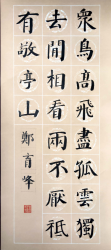 眾鳥高飛盡孤雲獨
去閒相看兩不厭祗
有敬亭山
鄭育峰